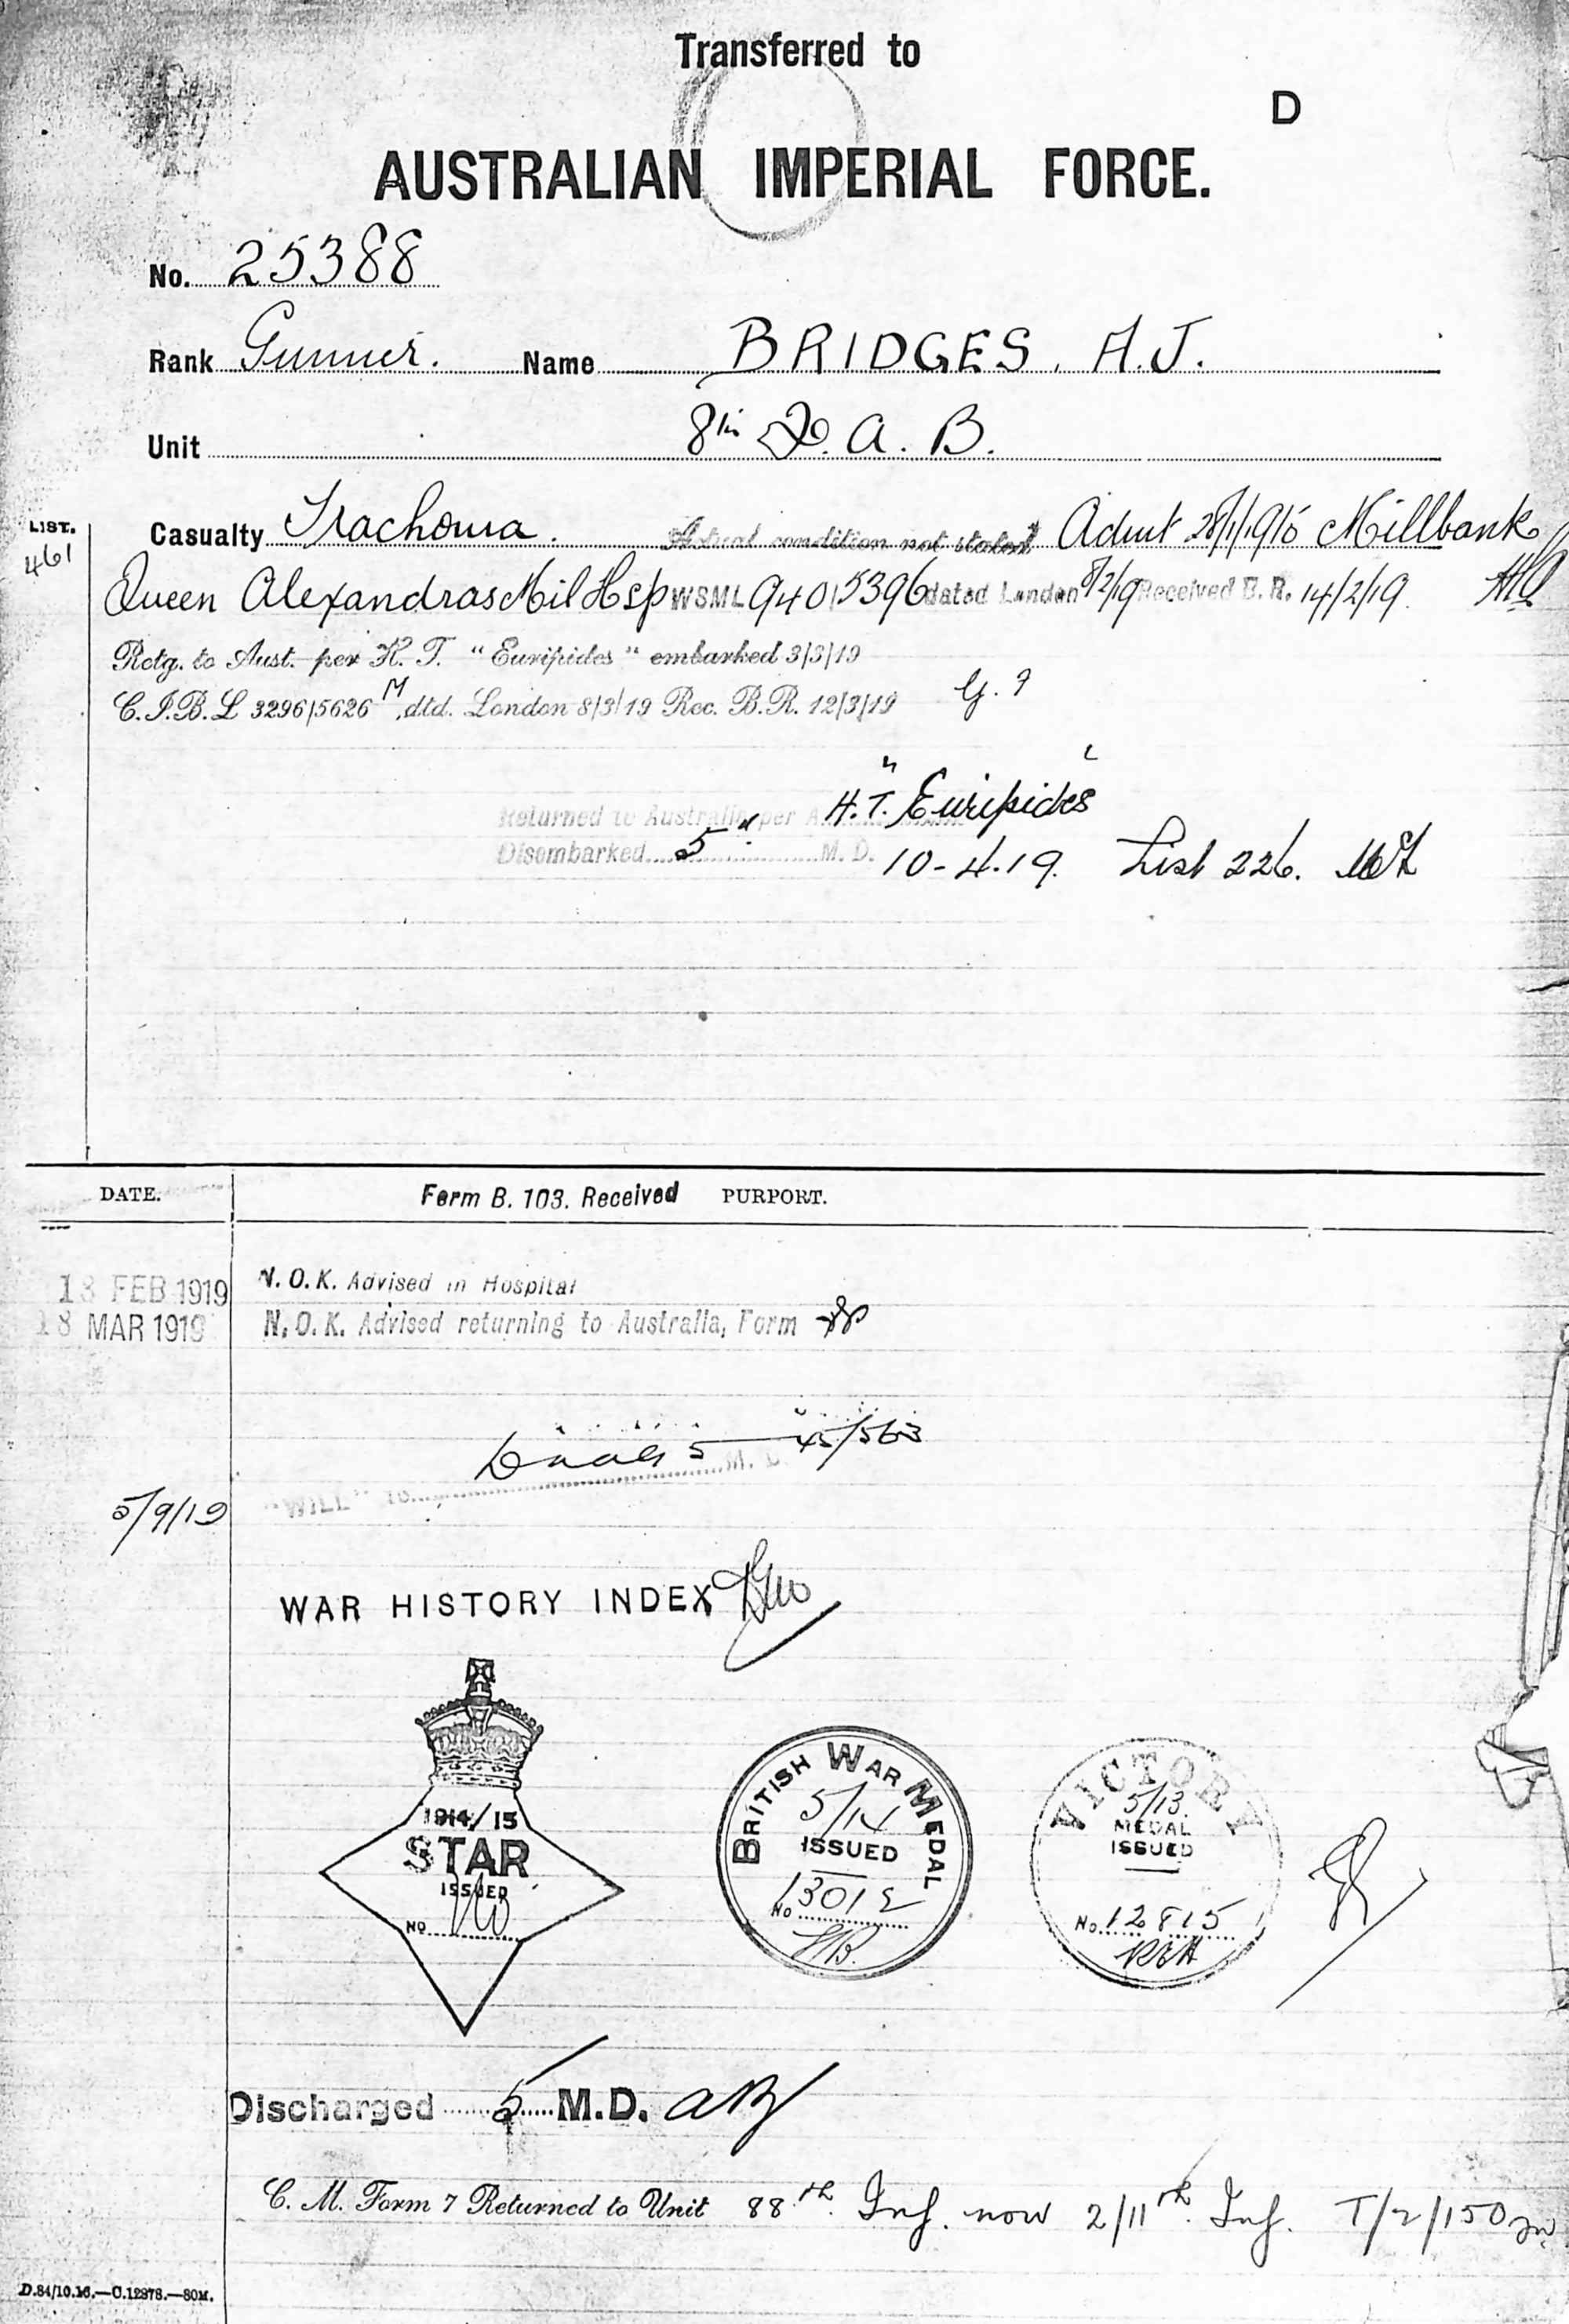 Transferred to
D
AUSTRALIAN IMPERIAL FORCE.
No. 25388
Rank Gunner. Name BRIDGES, A.J.
Unit 8th F.A.B.
LIST.
461
Casualty Trachoma. Actual condition not stated Admt 28/1/19 Millbank
Queen Alexandras Mil Hsp WSML 940/5396 dated London 8/2/19 Received B.R. 14/2/19.
Retg. to Aust. per H. T. "Euripides" embarked 3/3/19
C.I.B.L 3296/5626 M, dtd. London 8/3/19 Rec. B.R. 12/3/19
Returned to Australia per H.T. "Euripides"
Disembarked 5" M.D. 10-4.19. List 226.
DATE. Form B. 103. Received PURPORT.
18 FEB 1919 N.O.K. Advised in Hospital
18 MAR 1919 N.O.K. Advised returning to Australia, Form
5 45/563
M. D.
5/9/19 "WILL" to
WAR HISTORY INDEX
1914/15
STAR
ISSUED
No
BRITISH WAR MEDAL
5/14
ISSUED
No 13012
VICTORY
5/13.
MEDAL
ISSUED
No. 12815
Discharged 5 M.D.
C. M. Form 7 Returned to Unit 88th Inf. now 2/11th Inf. T/2/150
D.84/10.16.—C.12878.—80M.